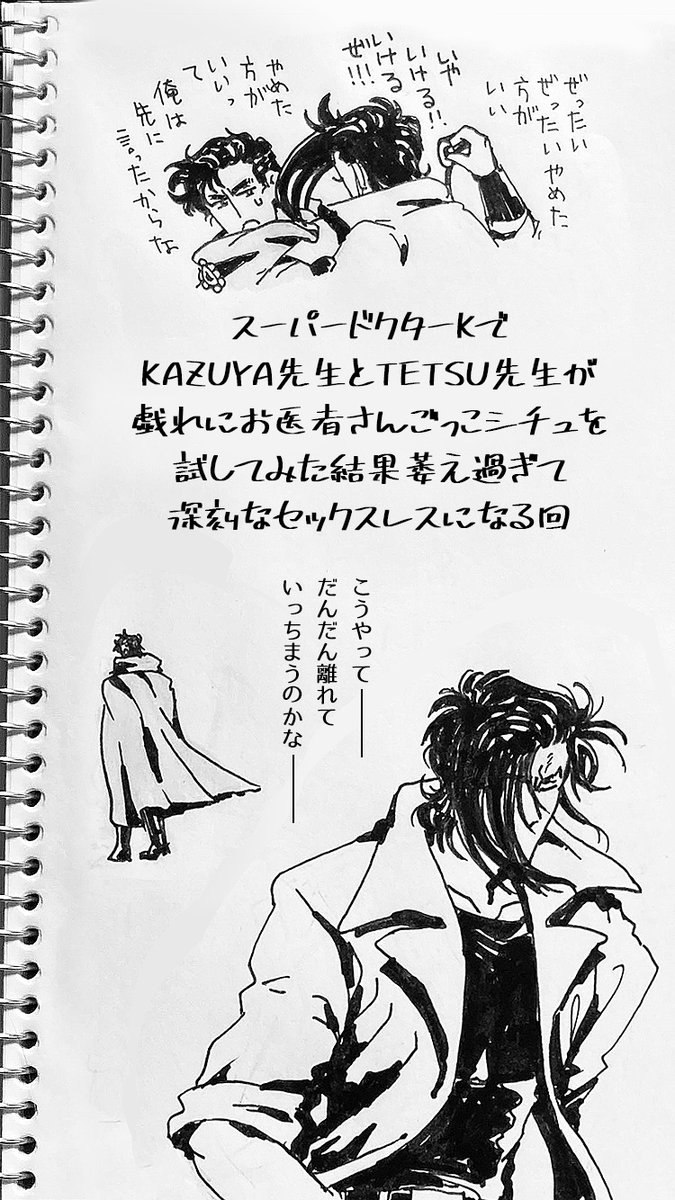 ぜったい
ぜったいやめた
方がいい
いや
いける!!
いける
ぜ!!!
やめた
方が
いいっ
て
俺は
先に
言ったからな
スーパードクターKで
KAZUYA先生とTETSU先生が
戯れにお医者さんごっこシチュを
試してみた結果萎え過ぎて
深刻なセックスレスになる回
こうやって――
だんだん離れて
いっちまうのかな――